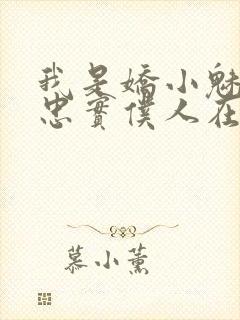 我是嬌小魅
忠實僕人在
慕小薰